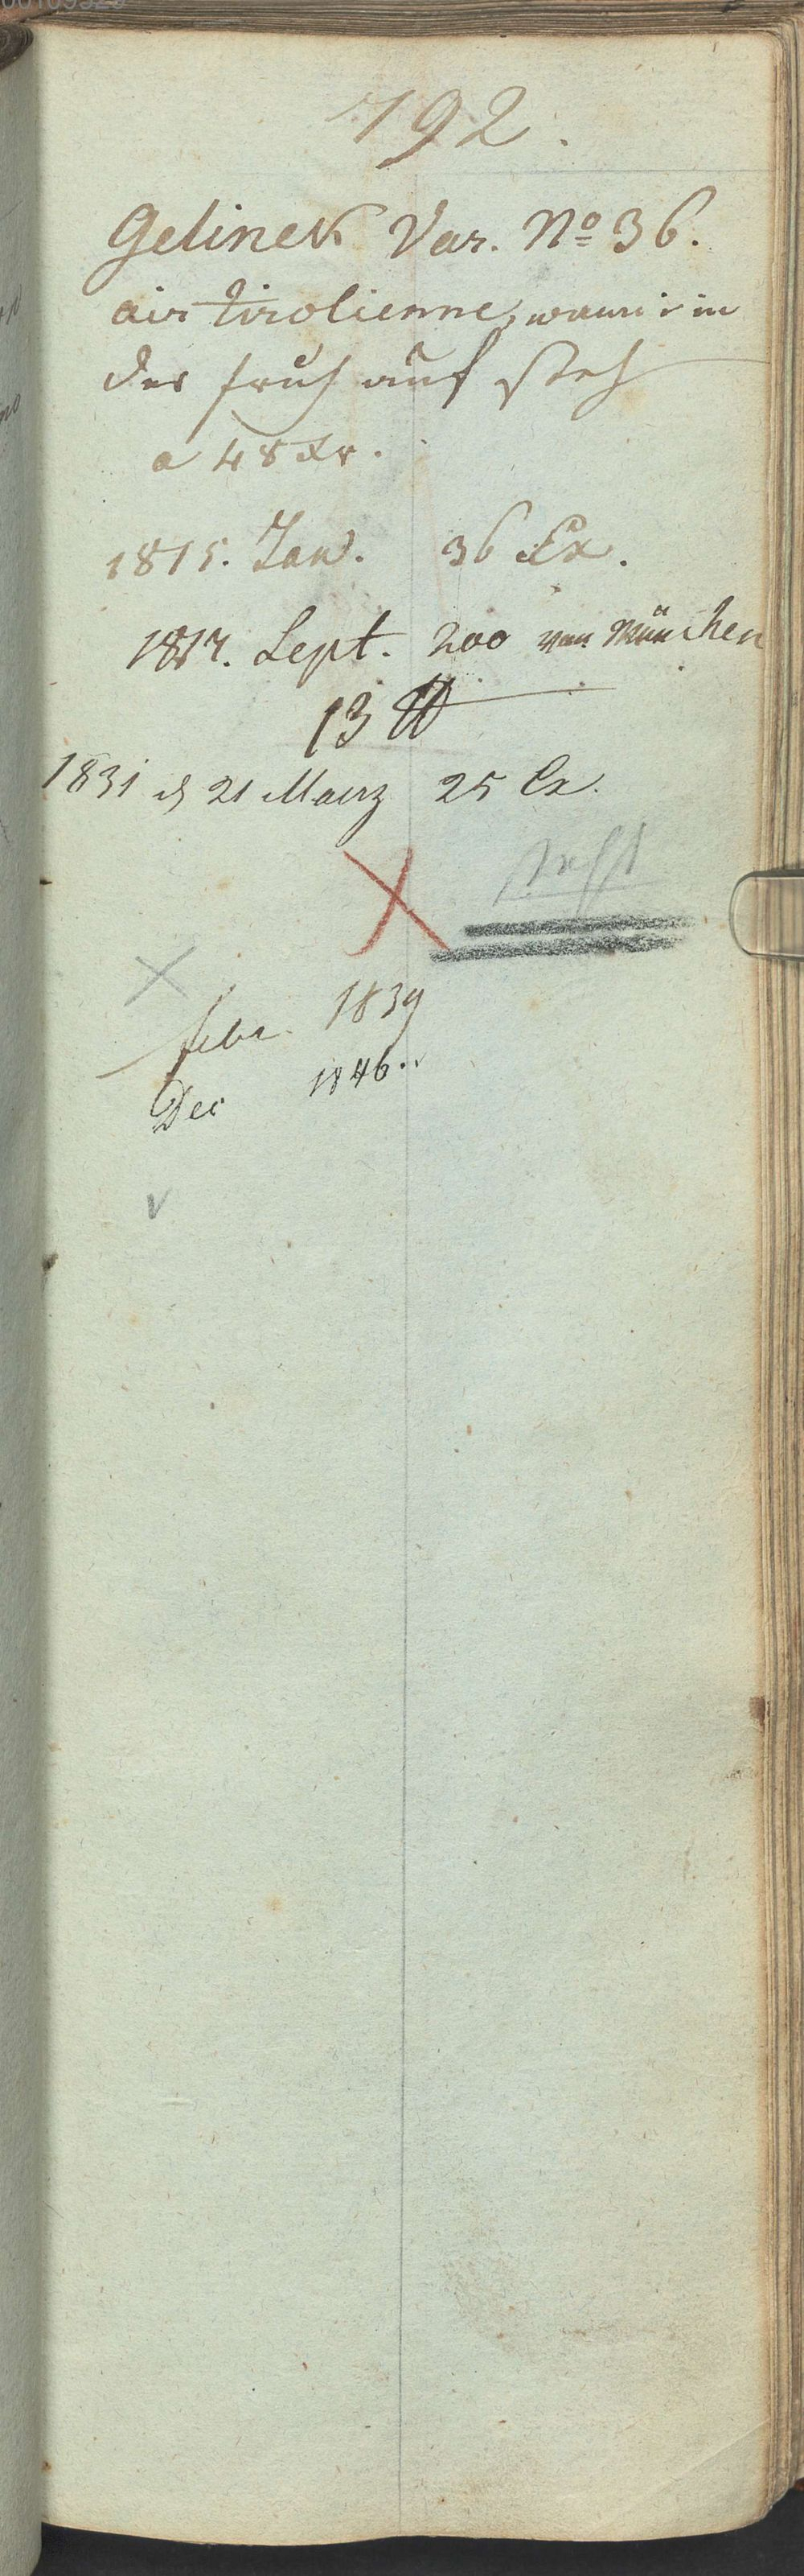 192.
Gelinek Var. No 36.
air tirolienne, wann i in
der fruh auf steh
a 48 Xr.
1815. Jan. 36 Ex.
1817. Sept. 200 von München
13 ℔
1831 d 21 Maerz 25 Ex.
X steht
X
febr. 1839
Dec 1846.